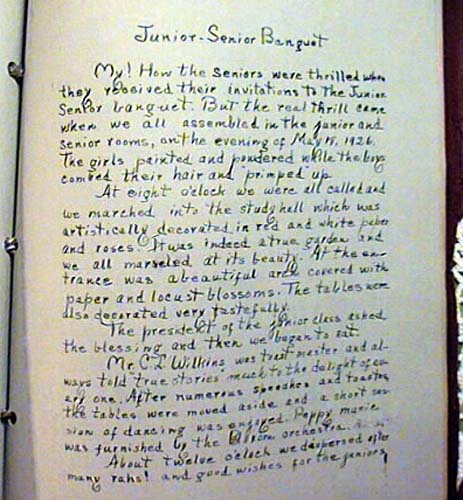 Junior-Senior Banquet
My! How the seniors were thrilled when
they received their invitations to the Junior
Senior banquet. But the real thrill came
when we all assembled in the junior and
senior rooms, on the evening of May 15, 1926.
The girls painted and powdered while the boys
combed their hair and primped up.
At eight o'clock we were all called and
we marched into the study hall which was
artistically decorated in red and white paper
and roses. It was indeed a true garden and
we all marveled at its beauty. At the en-
trance was a beautiful arch covered with
paper and locust blossoms. The tables were
also decorated very tastefully.
The president of the junior class asked
the blessing and then we began to eat.
Mr. C.L. Wilkins was toast master and al-
ways told true stories much to the delight of ev-
ery one. After numerous speeches and toasts,
the tables were moved aside and a short ses-
sion of dancing was enjoyed. Peppy music
was furnished by the orchestra.
About twelve o'clock we dispersed after
many rahs! and good wishes for the juniors